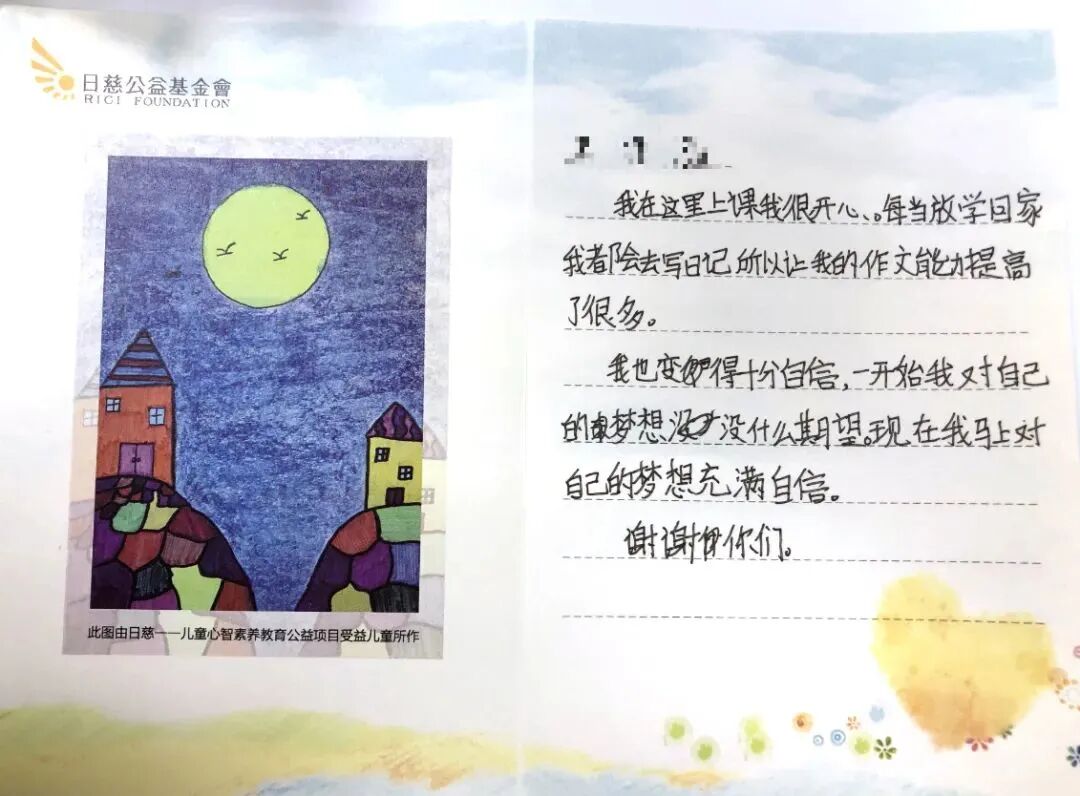 日慈公益基金會
RICI FOUNDATION
此图由日慈——儿童心智素养教育公益项目受益儿童所作
我在这里上课我很开心、。每当放学回家
我都会去写日记所以让我的作文能力提高
了很多。
我也变得十分自信,一开始我对自己
的梦想没什么期望。现在我马上对
自己的梦想充满自信。
谢谢你们。